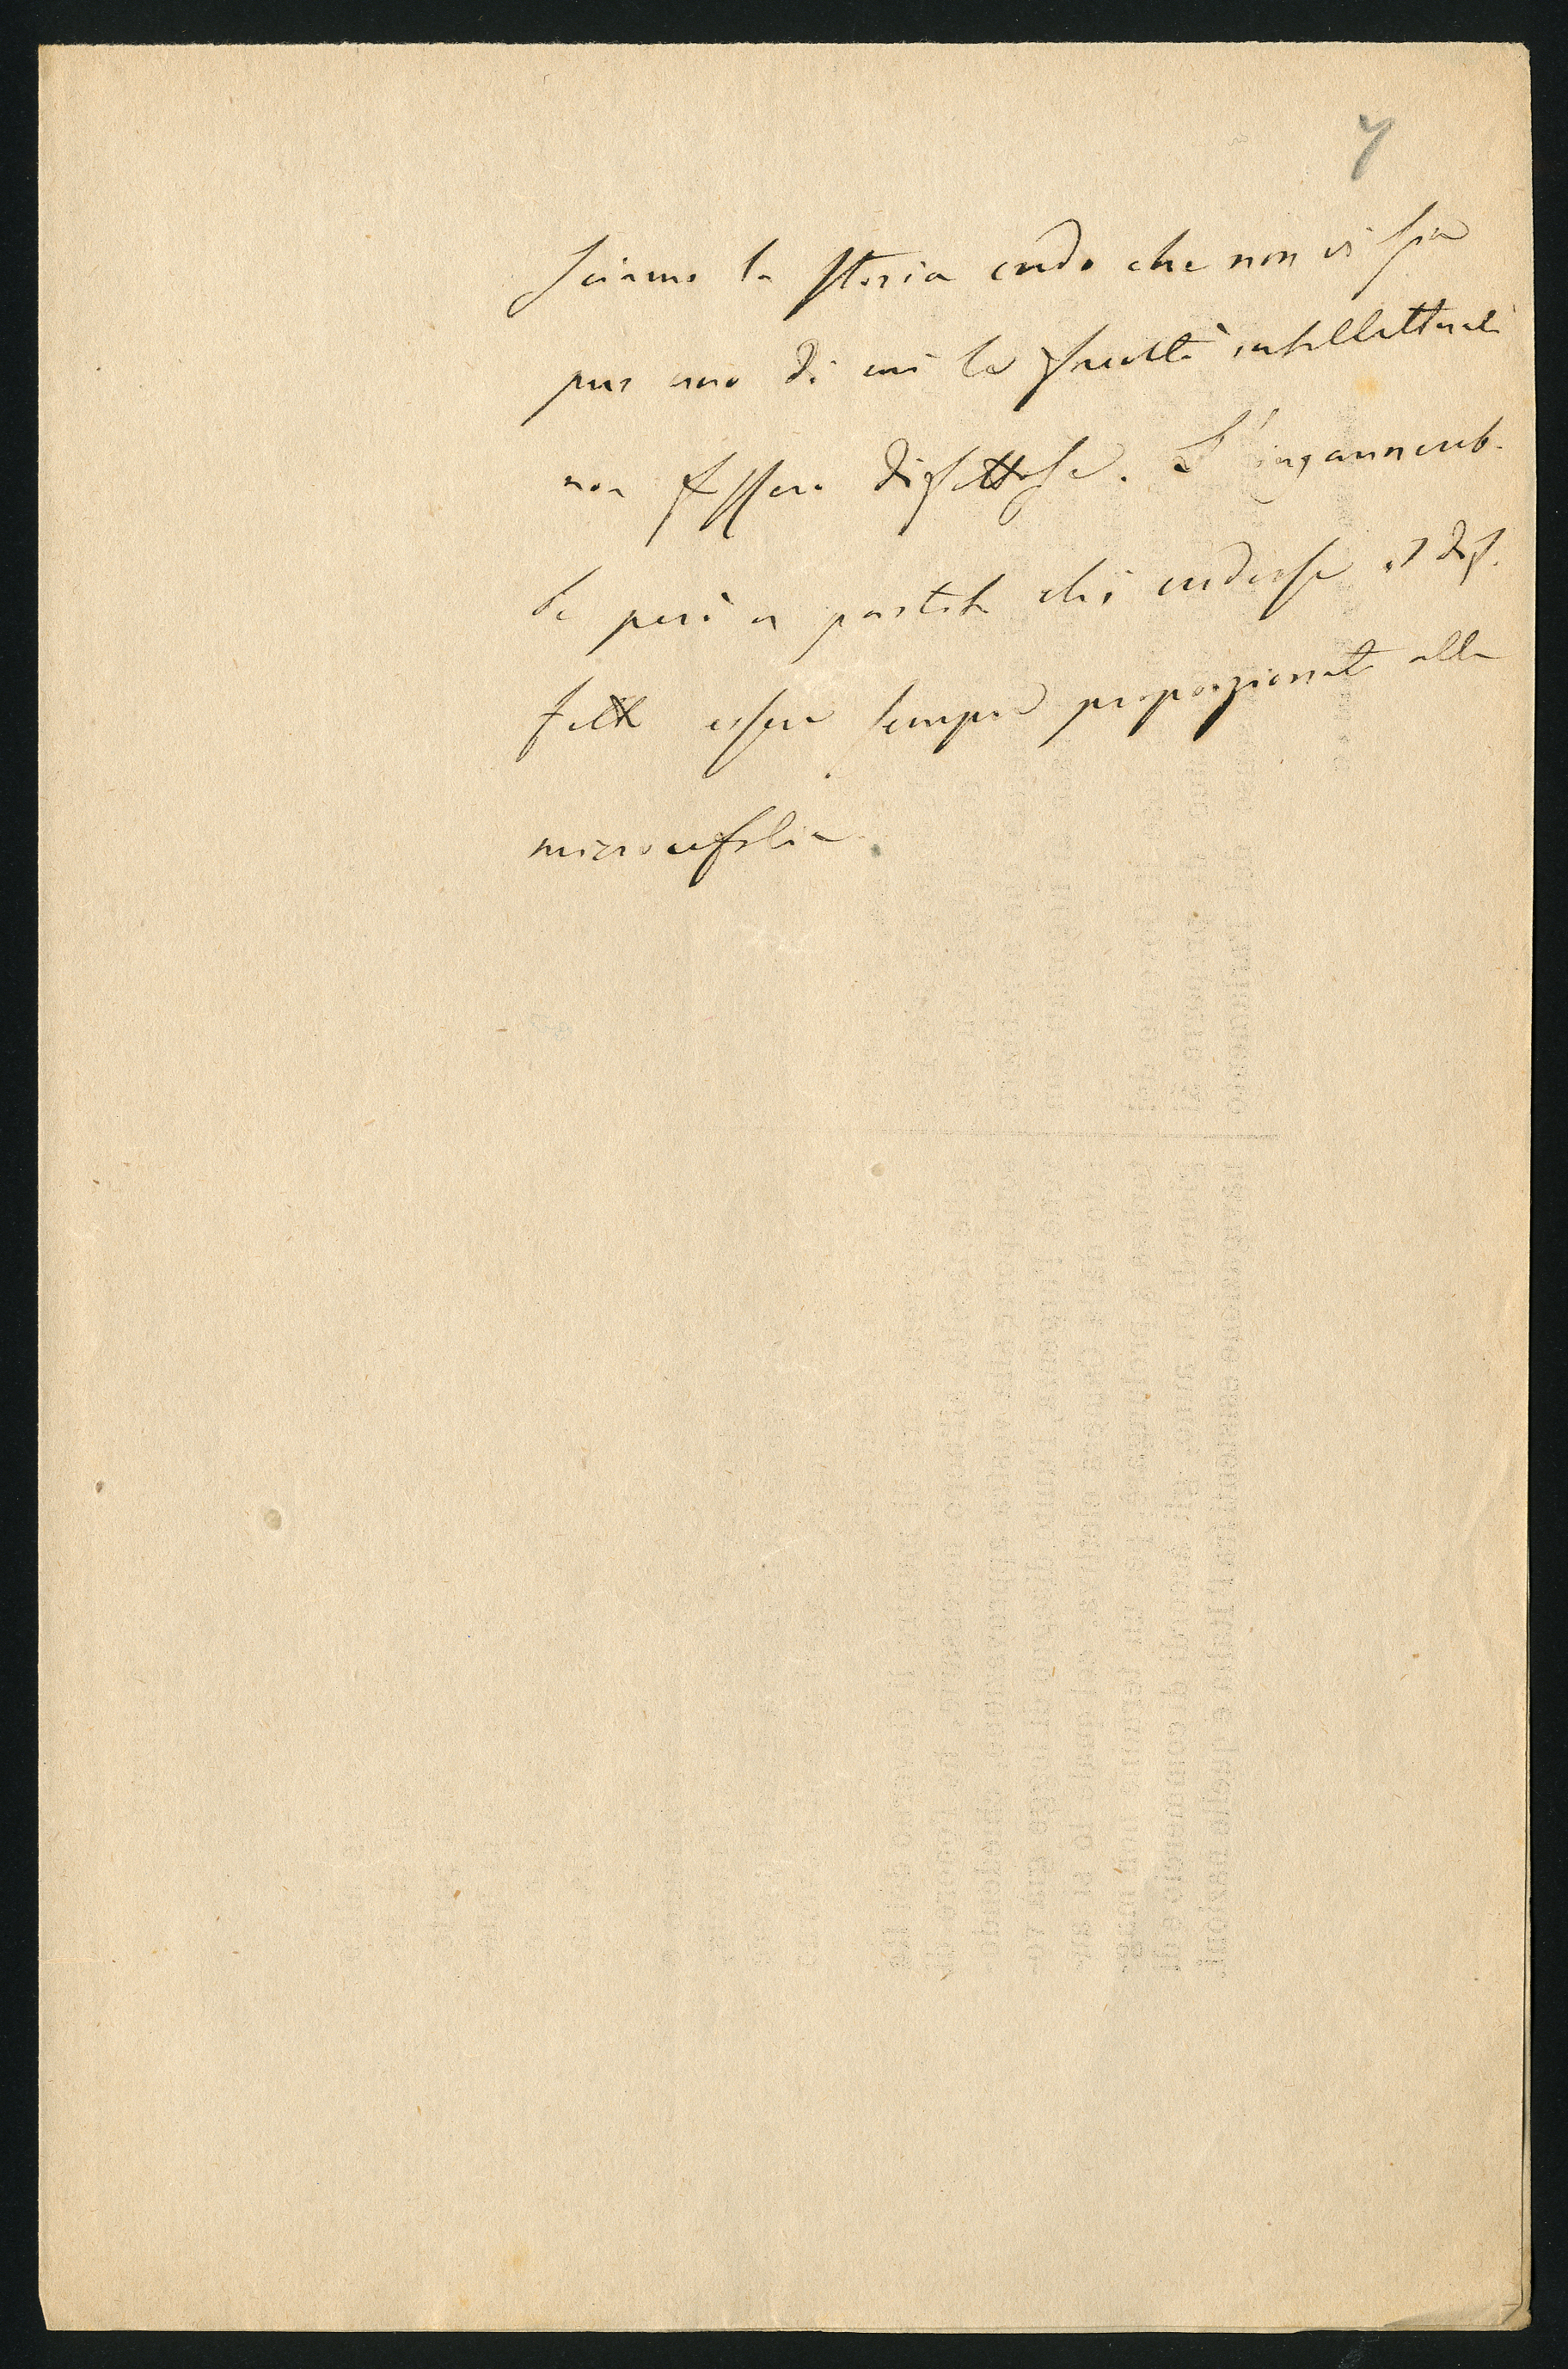 7
sciamo la storia credo che non vi sia
pur uno di cui le facoltà intellettuali
non fossero difettose. S'ingannereb-
be però a partito chi credesse il dif-
fetto essere sempre proporzionato alla
microcefalia.